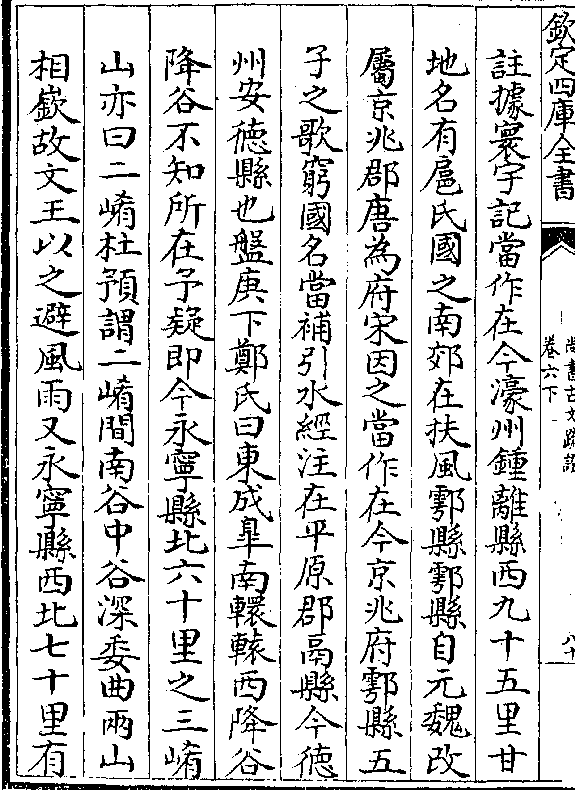 欽定四庫全書
尚書古文疏證
卷六下
八十
註據寰宇記當作在今濠州鍾離縣西九十五里甘
地名有扈氏國之南郊在扶風鄠縣鄠縣自元魏改
屬京兆郡唐為府宋因之當作在今京兆府鄠縣五
子之歌窮國名當補引水經注在平原郡鬲縣今德
州安德縣也盤庚下鄭氏曰東成臯南轘轅西降谷
降谷不知所在予疑即今永寧縣北六十里之三崤
山亦曰二崤杜預謂二崤間南谷中谷深委曲兩山
相嶔故文王以之避風雨又永寧縣西北七十里有